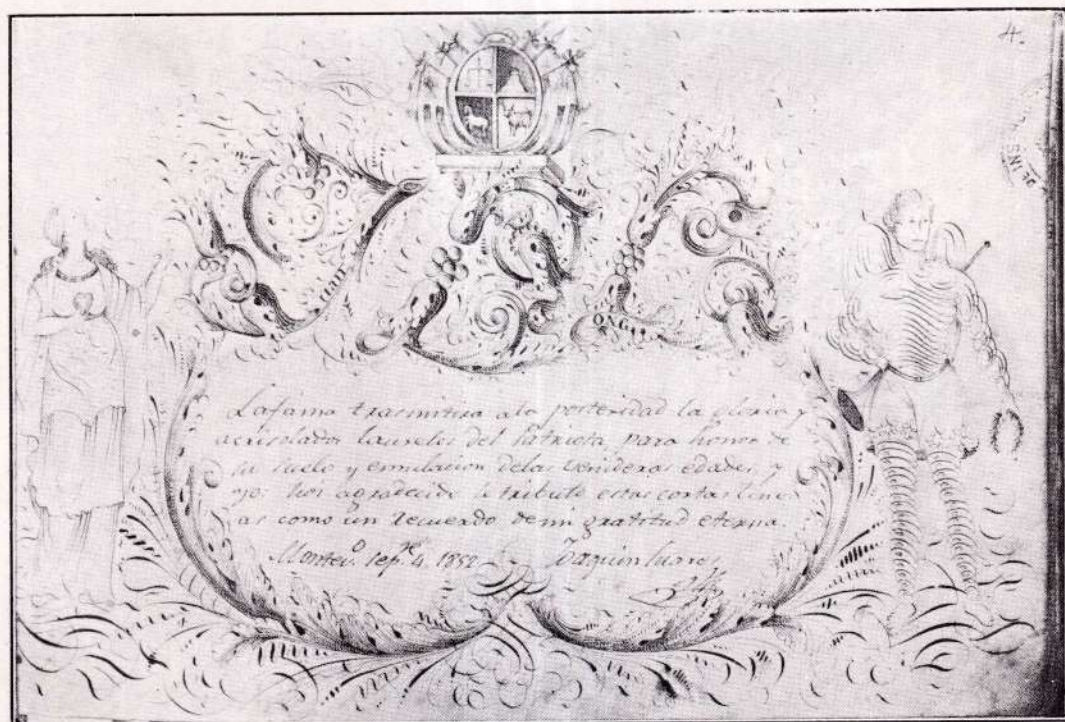 4.
DE INS
La fama trasmitira a la posteridad la gloria y
acrisolados laureles del Patriota, para honor de
su suelo y emulacion de las venideras edades, y
yo. hoi agradecido le tributo estas cortas line
as como un recuerdo de mi gratitud eterna.
Montevº. sepᵉ. 4. 1852 Joaquin Suares